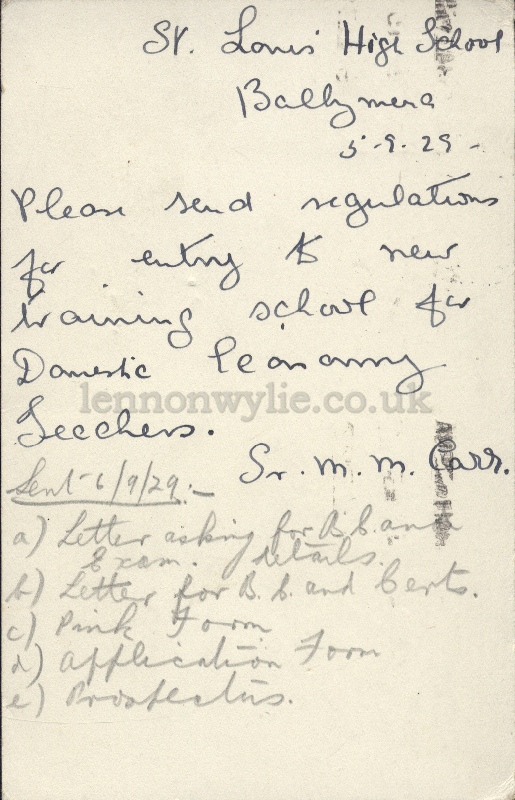 St. Louis High School
Ballymena
5-9-29-
Please send regulations
for entry to new
training school for
Domestic Economy
lennonwylie.co.uk
Teachers.
Sr. M. M. Carr.
Sent 6/9/29:-
a) Letter asking for B.C. and
Exam. details.
b) Letter for B.C. and Certs.
c) Pink Form
d) Application Form
e) Prospectus.